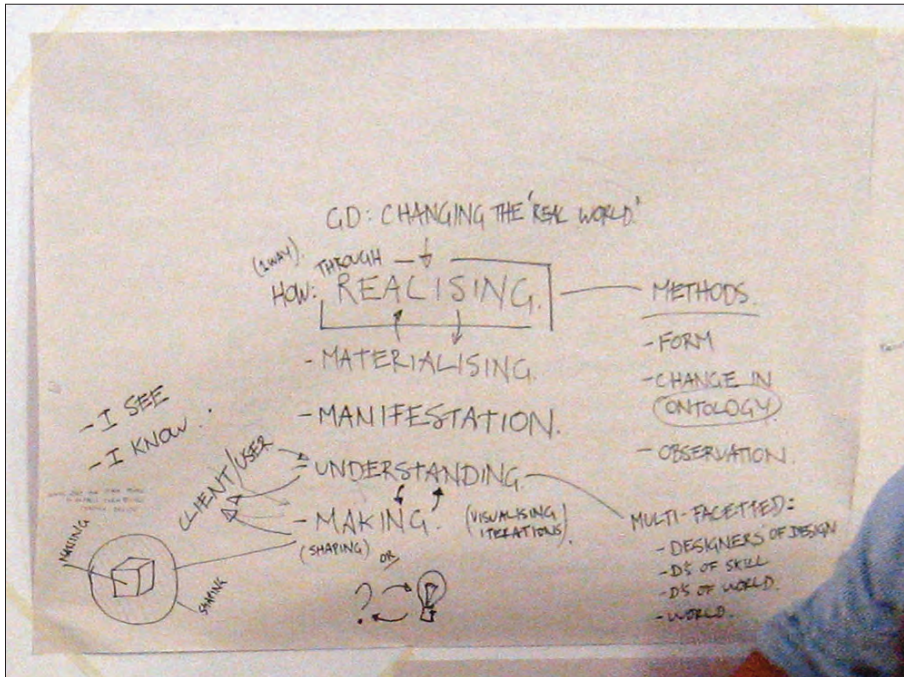 GD: CHANGING THE 'REAL WORLD.'
(1WAY).
THROUGH
HOW: REALISING.
- MATERIALISING.
- MANIFESTATION.
- UNDERSTANDING.
- MAKING.
(SHAPING)
(VISUALISING
ITERATIONS).
OR
?
METHODS.
- FORM
- CHANGE IN
ONTOLOGY
- OBSERVATION.
MULTI-FACETTED:
- DESIGNERS OF DESIGN
- D'S OF SKILL
- D'S OF WORLD.
- WORLD.
- I SEE
- I KNOW.
CLIENT/USER
MAKING
SHAPING